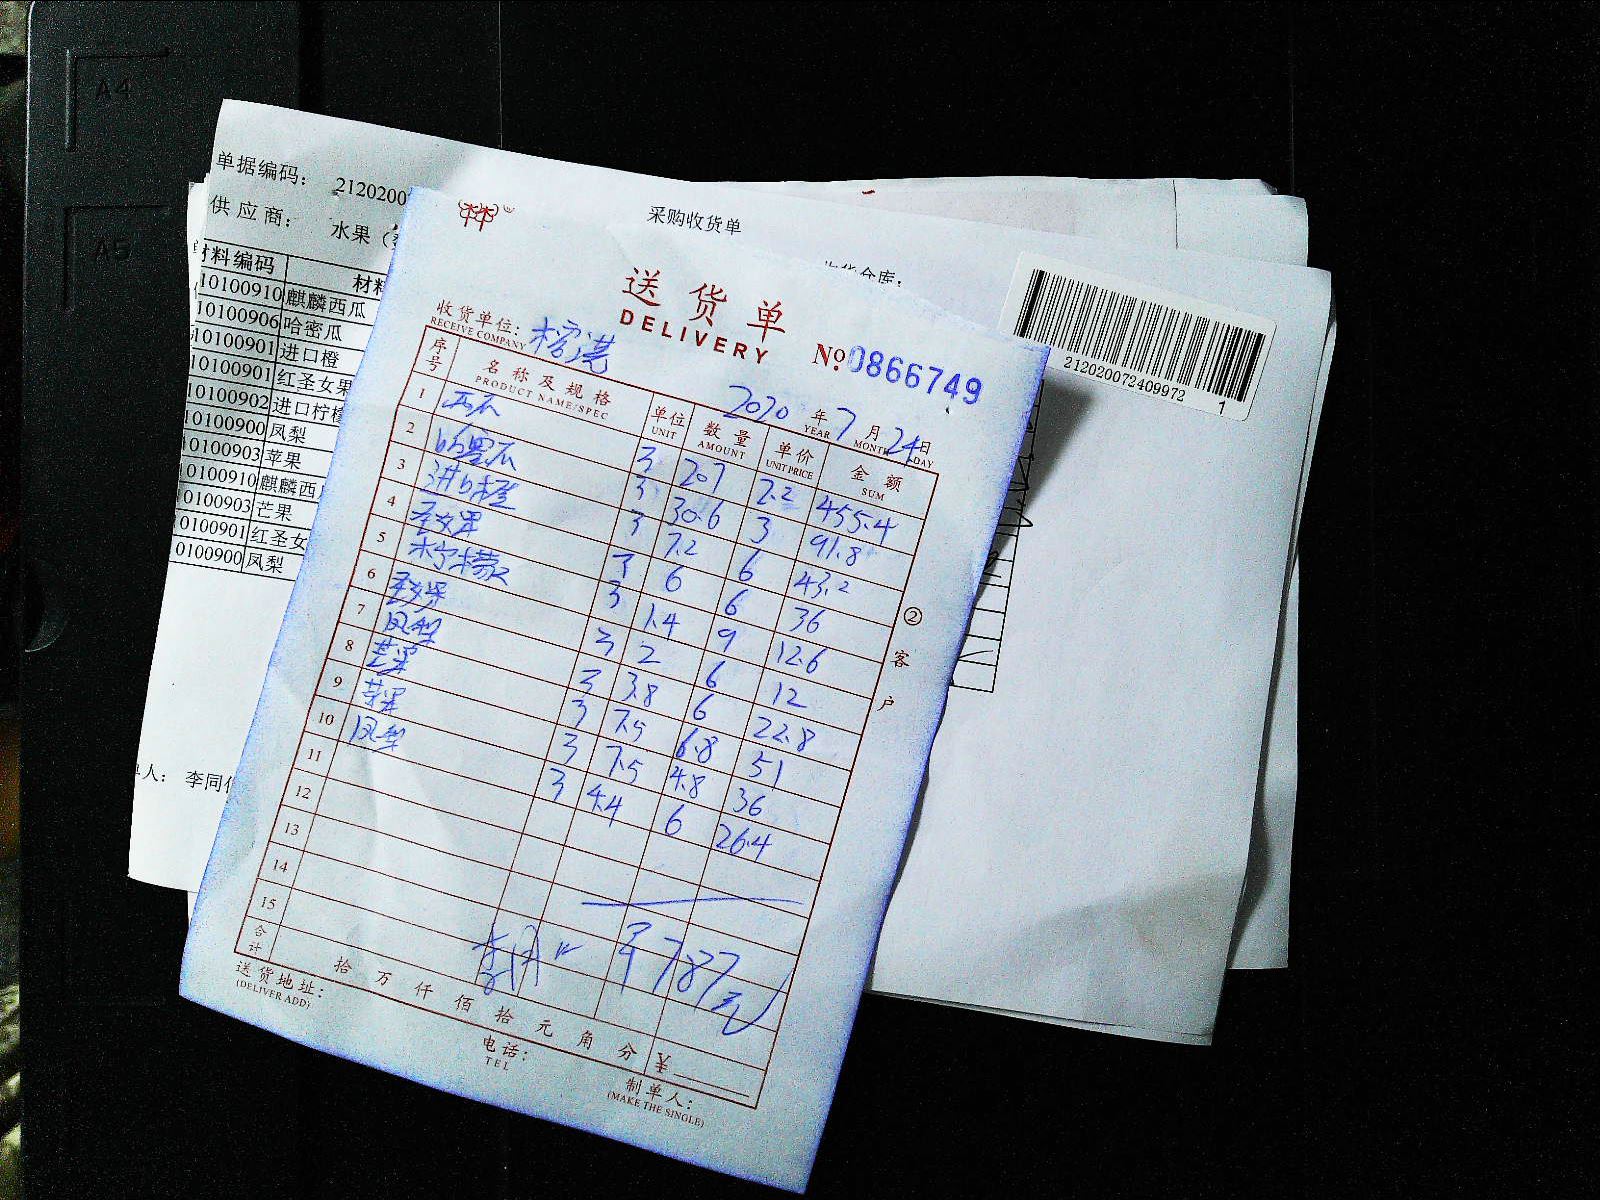 A4
A5
单据编码： 2120200
供 应 商： 水果（
采购收货单
材料编码 材料
10100910 麒麟西瓜
10100906 哈密瓜
10100901 进口橙
10100901 红圣女果
10100902 进口柠檬
10100900 凤梨
10100903 苹果
10100910 麒麟西
0100903 芒果
0100901 红圣女
0100900 凤梨
人： 李同
212020072409972 1
送货单
DELIVERY
收货单位：榕港
RECEIVE COMPANY
№ 0866749
2020 年 7 月 24 日
YEAR MONTH DAY
序号 名称及规格 单位 数量 单价 金额
PRODUCT NAME/SPEC UNIT AMOUNT UNIT PRICE SUM
1 西瓜 207 2.2 455.4
2 哈密瓜 30.6 3 91.8
3 进口橙 7.2 6 43.2
4 圣女果 6 6 36
5 柠檬 1.4 9 12.6
6 圣女果 2 6 12
7 凤梨 3.8 6 22.8
8 芒果 7.5 6.8 51
9 苹果 7.5 4.8 36
10 凤梨 4.4 6 26.4
11
12
13
14
15
李同 ¥787元
合计 拾 万 仟 佰 拾 元 角 分 ¥
送货地址：
(DELIVER ADD)
电话：
TEL
制单人：
(MAKE THE SINGLE)
②客户